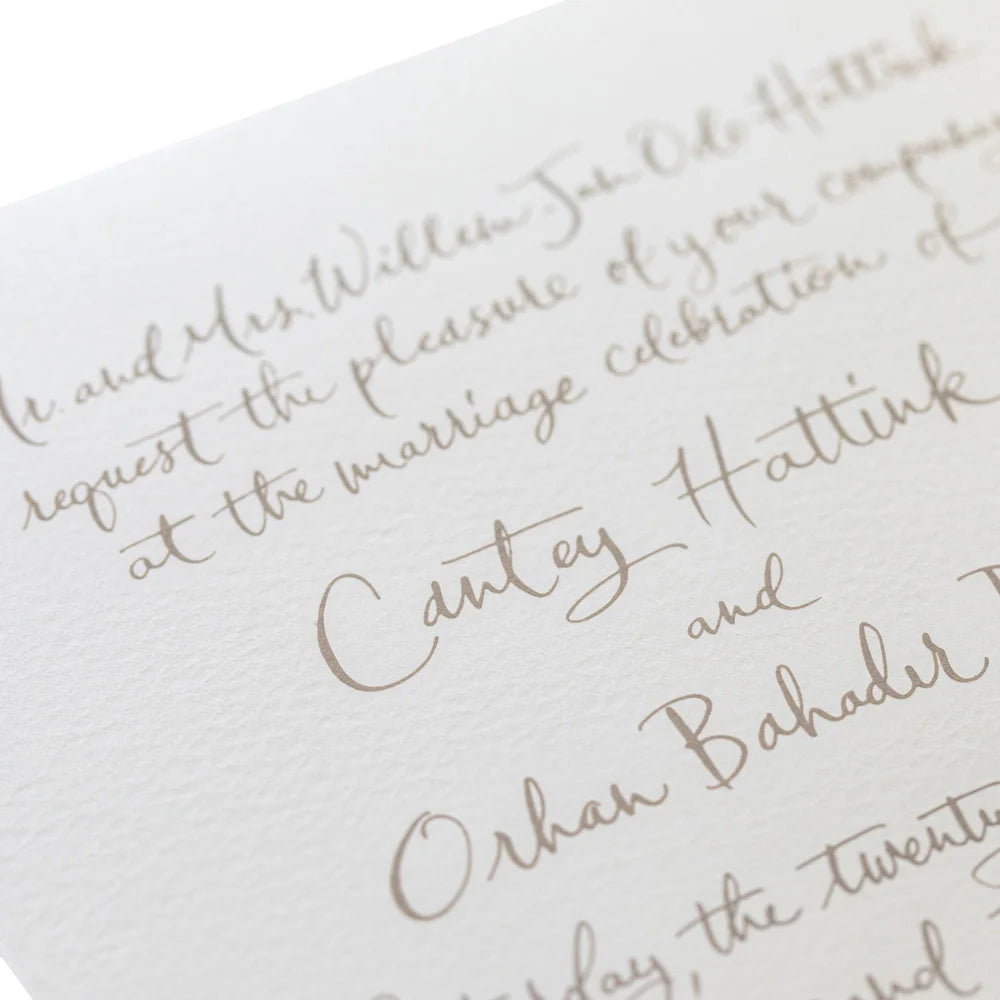 and Mrs. Willem Jan Odo Hattink
request the pleasure of your company
at the marriage celebration of
Cantey Hattink
and
Orhan Bahadır
the twenty